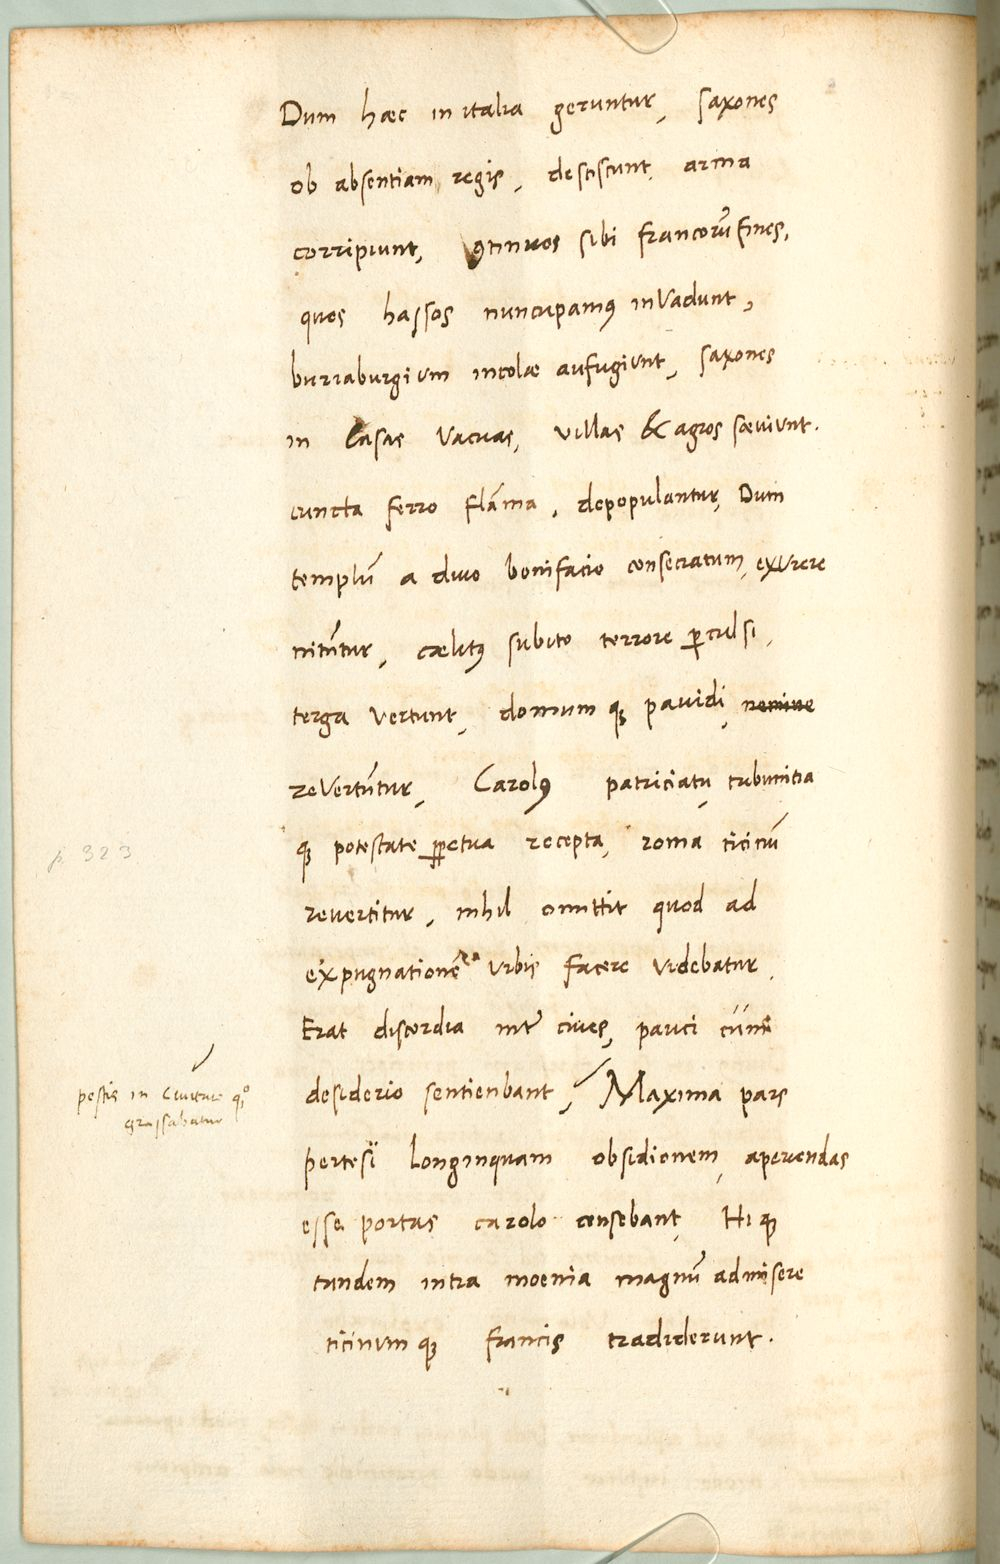 Dum hæc in italia geruntur, saxones
ob absentiam regis, desciscunt, arma
corripiunt, ꝯtinuos sibi francorũ fines,
quos hassos nuncupamꝰ inVadunt,
burraburgium incolæ aufugiunt, saxones
in Casas Vacuas, villas & agros sæviunt.
cuncta ferro flãma, depopulantur, Dum
templũ a divo bonifacio consecratum, exurere
nitũtur, cælitꝰ subito terrore ꝑculsi,
terga vertunt, domum qꝫ pavidi, nemine
reVertũtur, Carolꝰ patriciatu, tribunitia
qꝫ potestate ꝑpetua recepta, roma ticinũ
revertitur, nihil omittit quod ad
expugnationẽ urbis facere videbatur,
Erat discordia inter cives, pauci cum
desiderio sentienbant, Maxima pars
pertesi longinquam obsidionem, aperiendas
esse portas carolo censebant, Hi qꝫ
tandem intra moenia magnũ admisere
ticinum qꝫ francis tradiderunt.
pestis in Civitate qꝫ
grassabatur
p. 323